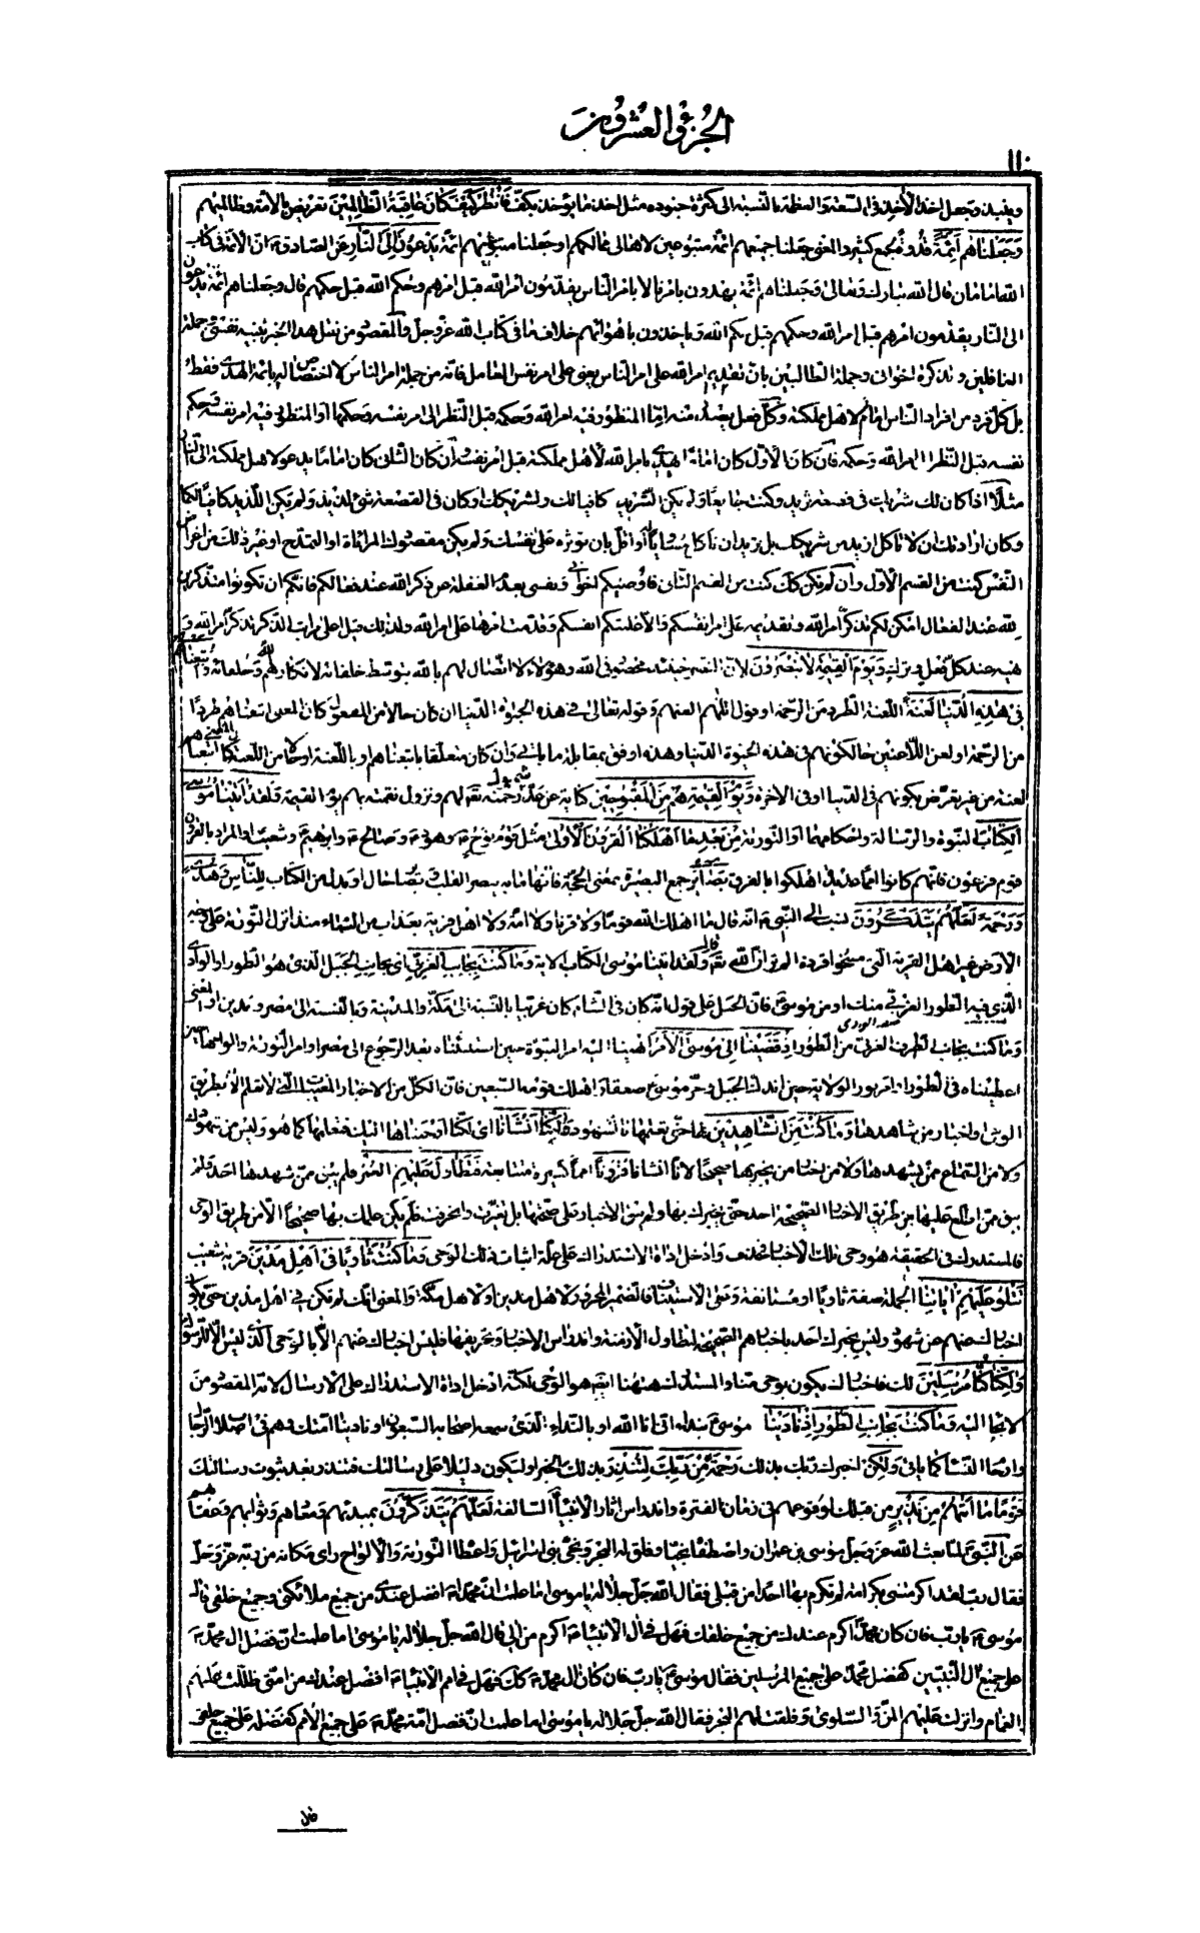 الجزء العشرون
١١٠
ويفيد وجعل اخذ الآخذ في السعة والعظمة بالنسبة الى كثرة جنوده مثل اخذ ما يؤخذ بكف فَانْظُرْ كَيْفَ كَانَ عَاقِبَةُ الظَّالِمِينَ تعريض بالامة وظالميهم
وَجَعَلْنَاهُمْ أَئِمَّةً والمعنى جعلنا جميعهم ائمة متبوعين لاهالى ممالكهم او جعلنا متبوعيهم ائمة يَدْعُونَ إِلَى النَّارِ عن الصادق ع ان الائمة في كتاب
الله امامان قال الله تبارك وتعالى وجعلناهم ائمة يهدون بامرنا لا بامر الناس يقدمون امر الله قبل امرهم وحكم الله قبل حكمهم قال وجعلناهم ائمة يدعون
الى النار يقدمون امرهم قبل امر الله وحكمهم قبل حكم الله وياخذون باهوائهم خلاف ما في كتاب الله عز وجل والمقصود من نقل هذا الخبر تنبيه نفسى وجملة
الغافلين وتذكرة اخوانى وجملة الطالبين بان تقديم امر الله على امر الناس يعنى على امر نفس العامل فانه من جملة امر الناس لا اختصاص له بائمة الهدى فقط
بل كل فرد من افراد الناس امام لاهل مملكته وكل فعل يصدر منه اما المنظور فيه امر الله وحكمه قبل النظر الى امر نفسه وحكمها او المنظور فيه امر نفسه وحكم
نفسه قبل النظر الى امر الله وحكمه فان كان الاول كان اماما يهدى بامر الله لاهل مملكته قبل امر نفسه وان كان الثانى كان اماما يدعو لاهل مملكته الى النار
مثلا اذا كان لك شريك في قصعة ثريد وكنت جايعا ولم يكن الثريد كافيا لك ولشريكك او كان في القصعة شئ لذيذ ولم يكن اللذيذ كافيا لكما
وكان ارادتك ان لا تاكل ازيد من شريكك بل تريد ان تاكل مساويا له او اقل بان تؤثره على نفسك ولم يكن مقصودك المراياة او التمدح او غير ذلك من اغراض
النفس كنت من القسم الاول وان لم تكن كذلك كنت من القسم الثانى فاوصيكم اخوانى ونفسى بعدم الغفلة عن ذكر الله عند فعالكم فانكم ان تكونوا متذكرين
لله عند الفعال امكن لكم تذكر امر الله وتقديمه على امر انفسكم والا غلبتكم انفسكم وقدمت امرها على امر الله ولذلك قيل اعلى مراتب الذكر تذكر امر الله و
نهيه عند كل فعل وترك وَيَوْمَ الْقِيَامَةِ لَا يُنْصَرُونَ لان النصرة حينئذ مخصوص في الله وهؤلاء لا اتصال لهم بالله بتوسط خلفائه لانكارهم الله وخلفائه وَأَتْبَعْنَاهُمْ
فِي هَذِهِ الدُّنْيَا لَعْنَةً اللعنة الطرد من الرحمة او قول اللهم العنهم وقوله تعالى في هذه الحيوة الدنيا ان كان حالا من المفعول كان المعنى اتبعناهم طردا
من الرحمة او لعن اللاعنين حالكونهم في هذه الحيوة الدنيا وهذه اوفق بمقابلة ما ياتى وان كان متعلقا باتبعناهم او باللعنة او حالا من اللعنة كان المعنى اتبعناهم
لعنة من غير تعرض بكونهم في الدنيا او في الاخرة وَيَوْمَ الْقِيَامَةِ هُمْ مِنَ الْمَقْبُوحِينَ كناية عن عدم شمول رحمته تع لهم ونزول نقمته بهم يوم القيمة وَلَقَدْ آتَيْنَا مُوسَى
الْكِتَابَ النبوة والرسالة واحكامهما او التورية مِنْ بَعْدِ مَا أَهْلَكْنَا الْقُرُونَ الْأُولَى مثل قوم نوح ع وهود ع وصالح ع وابرهيم ع وشعيب ع او المراد بالقرون
قوم فرعون فانهم كانوا امما عديدة اهلكوا بالغرق بَصَائِرَ جمع البصيرة بمعنى الحجة فانها ما به يبصر القلب وبصائر حال او بدل من الكتاب لِلنَّاسِ وَهُدًى
وَرَحْمَةً لَعَلَّهُمْ يَتَذَكَّرُونَ نسب الى النبي ص انه قال ما اهلك الله قوما ولا قرنا ولا امة ولا اهل قرية بعذاب من السماء منذ انزل التورية على وجه
الارض غير اهل القرية التى مسخوا قردة الم تر ان الله تع قال ولقد آتينا موسى الكتاب الاية وَمَا كُنْتَ بِجَانِبِ الْغَرْبِيِّ اى بجانب الجبل الذى هو الطور او الوادى
الذي فيه الطور الغربى منك او من موسى ع فان الجبل على قول انه كان في الشام كان غربيا بالنسبة الى مكة والمدينة وبالنسبة الى مصر ومدين او المعنى
وما كنت بجانب الطرف الغربى من الطور إِذْ قَضَيْنَا إِلَى مُوسَى الْأَمْرَ انهينا اليه امر النبوة حين استنبائه بعد الرجوع الى مصر او امر التورية والواحها حين
اعطيناه في الطور او امر نور الولاية حين اندك الجبل وخر موسى ع صعقا واهلك قومه السبعين فان الكل من الاخبار المغيبات التى لا تعلم الا بطريق
الوحى او اخبار من يشاهدها وَمَا كُنْتَ مِنَ الشَّاهِدِينَ لها حتى تعلمها بالشهود وَلَكِنَّا أَنْشَأْنَا اى لكنا اوحيناها اليك فتعلمها كما هو وليس من شهودك
ولا من السماع ممن يشهدها ولا من اخبار من يخبر بها صحيحا لانا انشانا قُرُونًا امما كثيرة متتابعة فَتَطَاوَلَ عَلَيْهِمُ الْعُمُرُ فلم يبق ممن شهدها احد ولم
يبق ممن اطلع عليها من طريق الاخبار الصحيحة احد حتى يخبرك بها ولم تبق الاخبار على صحتها بل تغيرت وانحرفت فلم يكن علمك بها صحيحا الا من طريق الوحى
فالمستدرك في الحقيقة هو وحى تلك الاخبار فحذف وادخل اداة الاستدراك على علة اثبات ذلك الوحى وَمَا كُنْتَ ثَاوِيًا فِي أَهْلِ مَدْيَنَ قرية شعيب
تَتْلُو عَلَيْهِمْ آيَاتِنَا الجملة صفة ثاويا او مستانفة وعلى الاستيناف فالضمير المجرور لاهل مدين او لاهل مكة والمعنى انك لم تكن في اهل مدين حتى يكون
اخبارك عنهم عن شهود وليس يخبرك احد باخبارهم الصحيحة لتطاول الازمنة واندراس الاخبار وتحريفها فليس اخبارك عنهم الا بالوحى الذى ليس الا للرسول
وَلَكِنَّا كُنَّا مُرْسِلِينَ لك فاخبارك يكون بوحى منا والمستدرك هيهنا ايضا هو الوحى لكنه ادخل اداة الاستدراك على الارسال لانه المقصود من
الايحاء اليه وَمَا كُنْتَ بِجَانِبِ الطُّورِ إِذْ نَادَيْنَا موسى ع بنداء انى انا الله او بالنداء الذى سمعه اصحابه السبعون او نادينا امتك وهم في اصلاب الرجال
وارحام النساء كما ياتى وَلَكِنْ اخبرك ربك بذلك رَحْمَةً مِنْ رَبِّكَ لِتُنْذِرَ بذلك الخبر او ليكون دليلا على رسالتك فتنذر بعد ثبوت رسالتك
قَوْمًا مَا أَتَاهُمْ مِنْ نَذِيرٍ مِنْ قَبْلِكَ لوقوعهم في زمان الفترة واندراس اثار الانبياء السالفة لَعَلَّهُمْ يَتَذَكَّرُونَ بمبدئهم ومعادهم وثوابهم وعقابهم
عن النبي ص لما بعث الله عز وجل موسى بن عمران واصطفاه نجيا وفلق له البحر ونجى بنى اسرائيل واعطاه التورية والالواح راى مكانه من ربه عز وجل
فقال رب لقد اكرمتنى بكرامة لم تكرم بها احدا من قبلى فقال الله جل جلاله يا موسى اما علمت ان محمدا ص افضل عندى من جميع ملائكتى وجميع خلقى قال
موسى ع يا رب فان كان محمد ص اكرم عندك من جميع خلقك فهل في ال الانبياء ع اكرم من الى قال الله جل جلاله يا موسى اما علمت ان فضل ال محمد ص
على جميع ال النبيين كفضل محمد على جميع المرسلين فقال موسى ع يا رب فان كان ال محمد ص كذلك فهل في امم الانبياء ع افضل عندك من امتى ظللت عليهم
الغمام وانزلت عليهم المن والسلوى وفلقت لهم البحر فقال الله جل جلاله يا موسى اما علمت ان فضل امة محمد ص على جميع الامم كفضله على جميع خلقى